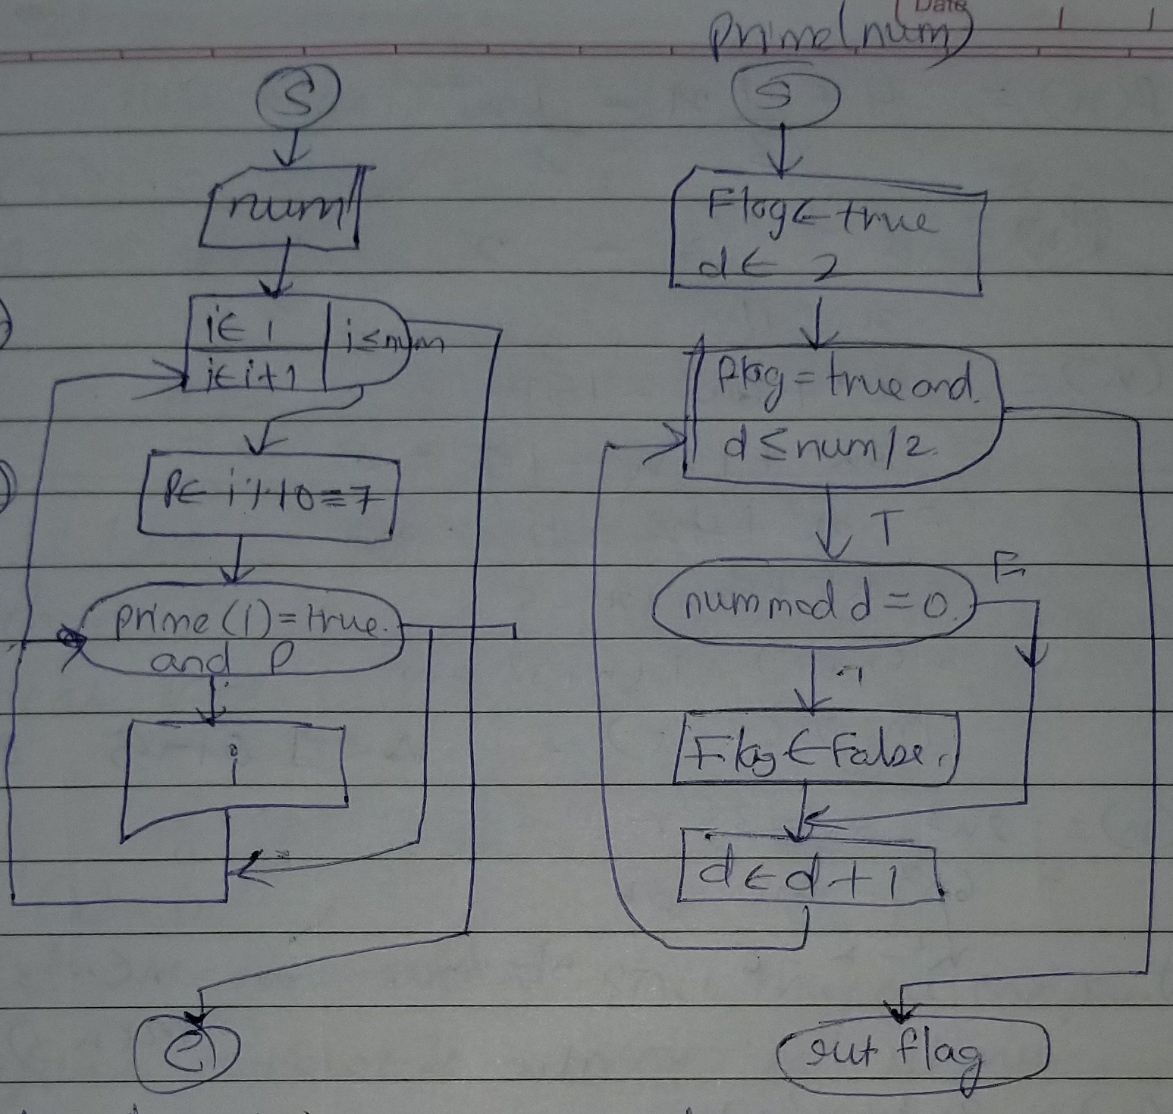 Date
prime(num)
S
num
i ← 1
i ← i+1
i ≤ num
P ← i % 10 = 7
prime(i) = true.
and P
i
e
S
Flag ← true
d ← 2
flag = true and
d ≤ num/2
T
num mod d = 0
F
Flag ← False.
d ← d + 1
flag